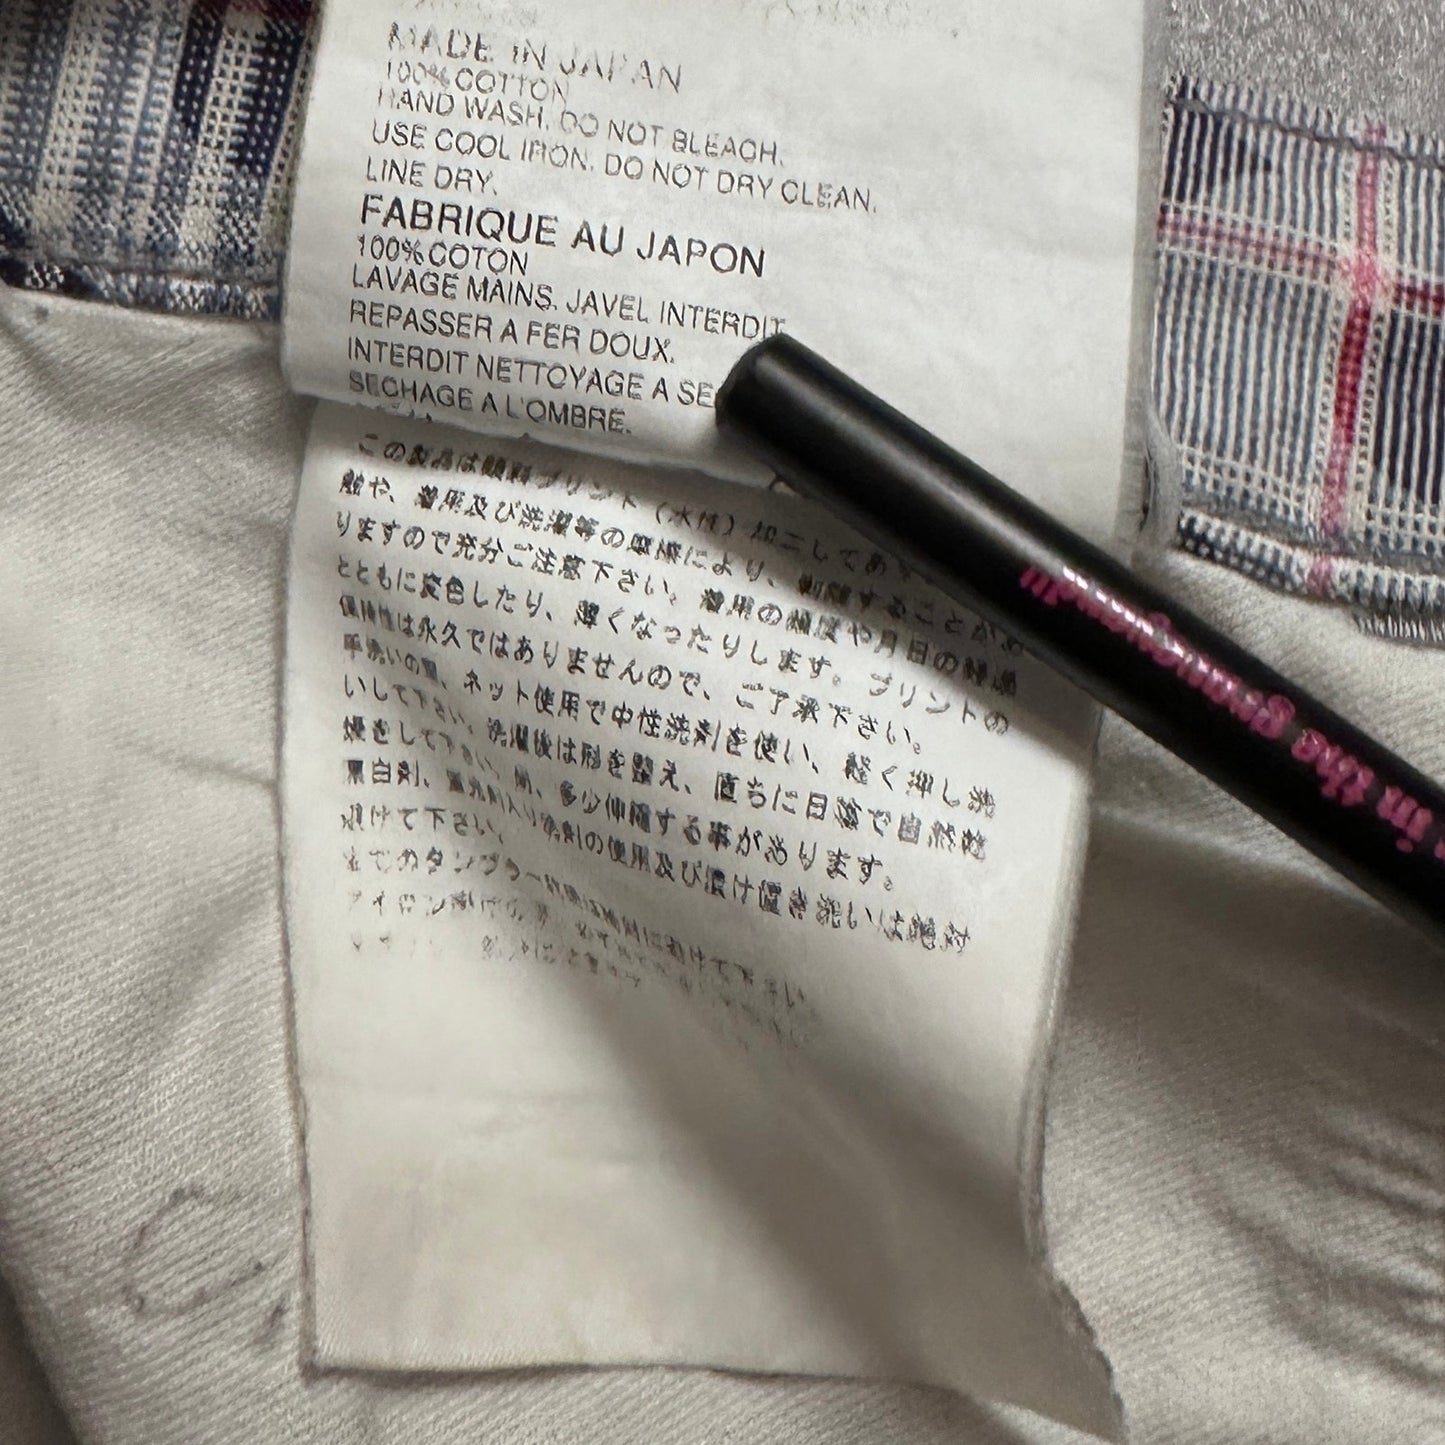 MADE IN JAPAN
100% COTTON
HAND WASH. DO NOT BLEACH.
USE COOL IRON. DO NOT DRY CLEAN.
LINE DRY.
FABRIQUE AU JAPON
100% COTON
LAVAGE MAINS. JAVEL INTERDIT
REPASSER A FER DOUX.
INTERDIT NETTOYAGE A SE
SECHAGE A L'OMBRE.
この製品は顔料プリント(水性)加工してあ
触や、着用及び洗濯等の摩擦により、剥離することがあ
りますので充分ご注意下さい。着用の頻度や月日の経過
とともに変色したり、薄くなったりします。プリントの
保持性は永久ではありませんので、ご了承下さい。
手洗いの際、ネット使用で中性洗剤を使い、軽く押し洗
いして下さい。洗濯後は形を整え、直ちに日陰で自然乾
燥をして下さい。尚、多少伸縮する事があります。
漂白剤、蛍光剤入り洗剤の使用及び漬け置き洗いは絶対
避けて下さい。
までのタンブラー乾燥は避けて下さい
in the garment